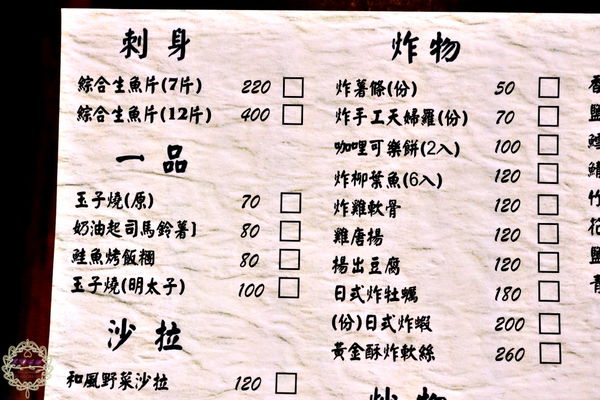 刺身
綜合生魚片(7片) 220
綜合生魚片(12片) 400
一品
玉子燒(原) 70
奶油起司馬鈴薯] 80
鮭魚烤飯糰 80
玉子燒(明太子) 100
沙拉
和風野菜沙拉 120
炸物
炸薯條(份) 50
炸手工天婦羅(份) 70
咖哩可樂餅(2入) 100
炸柳葉魚(6入) 120
炸雞軟骨 120
雞唐揚 120
揚出豆腐 120
日式炸牡蠣 180
(份)日式炸蝦 200
黃金酥炸軟絲 260